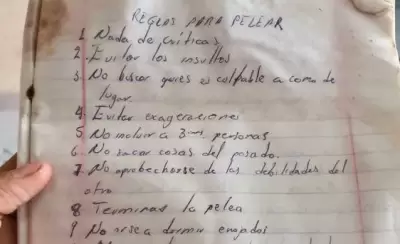 REGLAS PARA PELEAR
1 Nada de críticas
2. Evitar los insultos
3. No buscar quien es culpable a como de
lugar.
4. Evitar exageraciones
5 No incluir a 3ras personas
6. No sacar cosas del pasado.
7 No aprobecharse de las debilidades del
otro
8 Terminar la pelea
9 No irse a dormir enojados